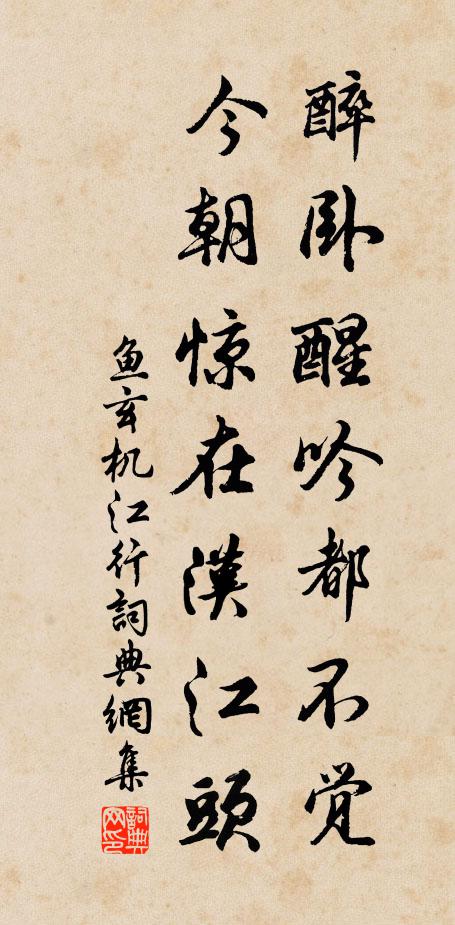 醉卧醒吟都不觉
今朝惊在漢江頭
鱼玄机江行詞典網集
詞典网印